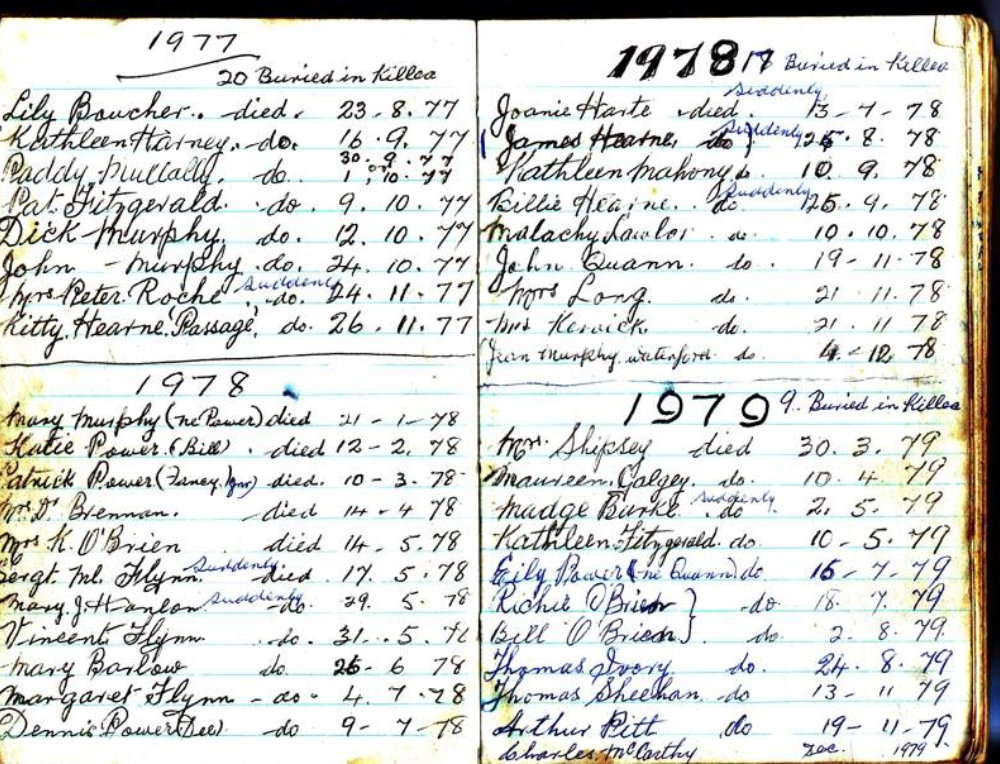 1977
20 Buried in Killea
Lily Boucher. died. 23. 8. 77
Kathleen Harney. do. 16. 9. 77
30. 9. 77
Paddy Mullally. do. 1, or 10. 77
Pat Fitzgerald. do. 9. 10. 77
Dick Murphy. do. 12. 10. 77
John - Murphy. do. 24. 10. 77
Suddenly
Mrs Peter Roche. do. 24. 11. 77
Kitty Hearne. (Passage). do. 26. 11. 77
1978
Mary Murphy (ne Power) died 21 - 1 - 78
Katie Power. (Bill). died 12 - 2. 78
Patrick Power (Faney. Jnr) died. 10 - 3. 78
Mrs. Dr. Brennan. died 14 - 4 78
Mrs K. O'Brien died 14. 5. 78
Sergt. Ml. Flynn. Suddenly died 17. 5. 78
Mary. J. Hanlon Suddenly do. 29. 5. 78
Vincent Flynn do. 31. 5. 78
Mary Barlow do. 26 - 6 78
Margaret Flynn - do - 4. 7. 78
Dennis Power (Dee) do 9 - 7 - 78
1978 17 Buried in Killea
Suddenly
Joanie Harte died. 13 - 7 - 78
James Hearne, do) Suddenly 26. 8. 78
Kathleen Mahony do. 10. 9. 78
Suddenly
Billie Hearne. do. 25. 9. 78
Malachy Lawlor do. 10. 10. 78
John Quann. do. 19 - 11 - 78
Mrs Long. do. 21. 11. 78
Mrs Kervick. do. 21. 11 78
(Jean Murphy. Waterford. do. 4 - 12. 78
1979 9. Buried in Killea
Mrs. Shipsey died 30. 3. 79
Maureen. Galgey. do. 10. 4. 79
Suddenly
Madge Burke. do 2. 5. 79
Kathleen. Fitzgerald. do. 10 - 5. 79
Eily Power (ne Quann) do. 15 - 7 - 79
Richie O'Brien } do 18. 7. 79
Bill O'Brien } do. 2. 8. 79
Thomas Ivory do. 24. 8. 79
Thomas Sheehan. do 13 - 11 79
Arthur Pitt do 19 - 11 - 79
Charles. McCarthy Dec. 1979